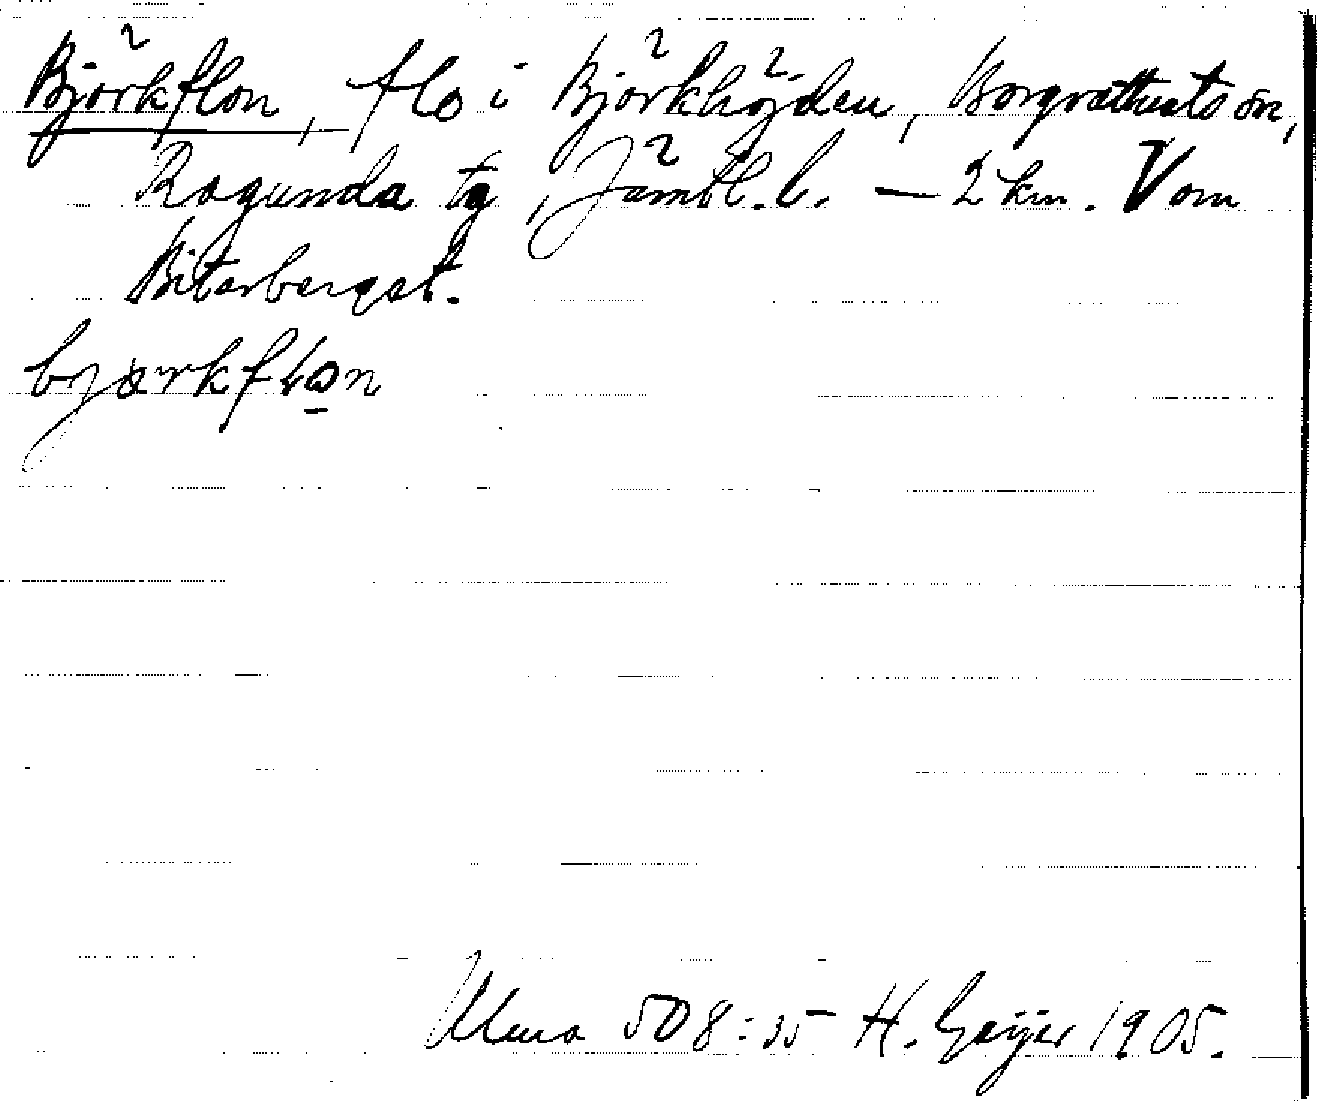 Björkflon, flo i Björkhöjden, Borgvattnets sn,
Ragunda tg, Jämtl. l. — 2 km. V om
Bitarberget.
bjærkfłon
Ulma 508:35 H. Geijer 1905.